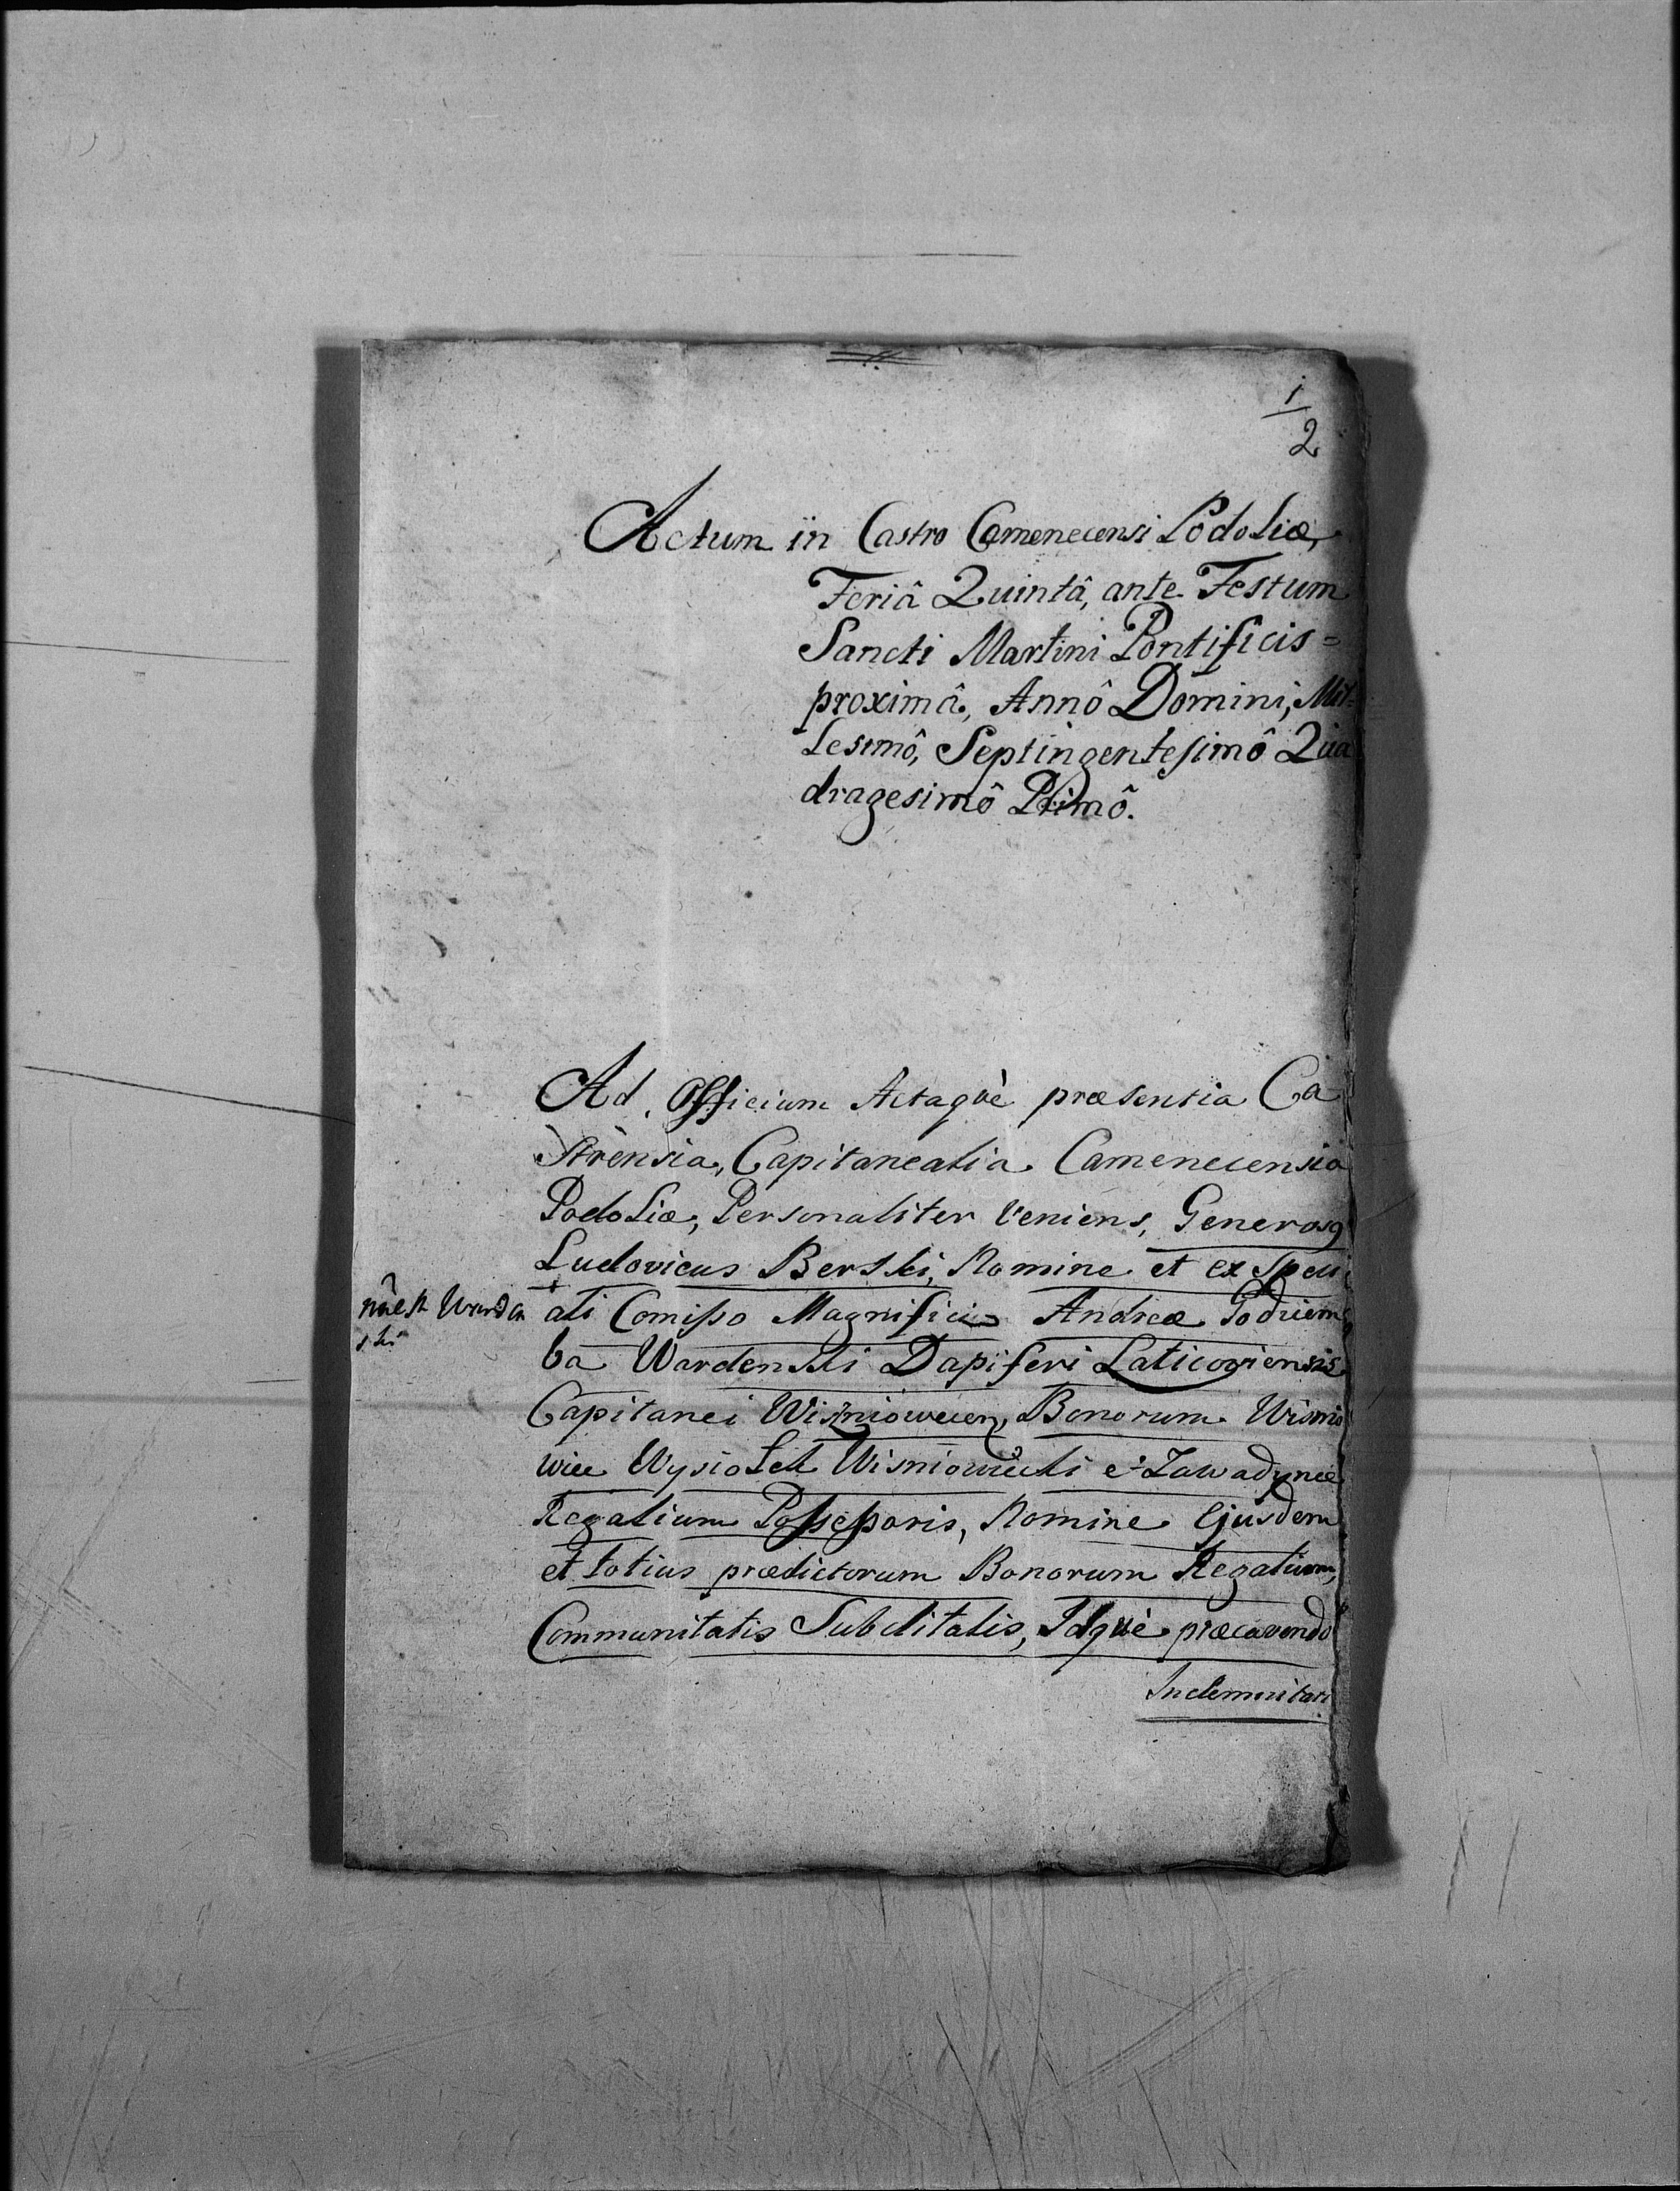 1
2
Actum in Castro Camenecensi Podoliæ,
Feriâ Quintâ, ante Festum
Sancti Martini Pontificis=
proximâ, Annô Domini, Mil=
lesimô, Septingentesimô Qua
dragesimô Primô.
Ad Officium Actaquè præsentia Ca
strènsia, Capitanealia Camenecensia
Podoliæ, Personaliter Veniens, Generosq
Ludovicus Berski, Nomine et ex Speci
ali Comisso Magnifici Andreæ Godziem
ba Wardenski Dapiferi Laticoviensis
Capitanei Wiśniowecen, Bonorum Wisnio
wiec Wysiołek Wisniowiecki et Zawadynce
Regalium Possessoris, Nomine Ejusdem
et totius prædictorum Bonorum Regalium,
Communitatis Subditalis, Idquè præcavendo
Indemnitati